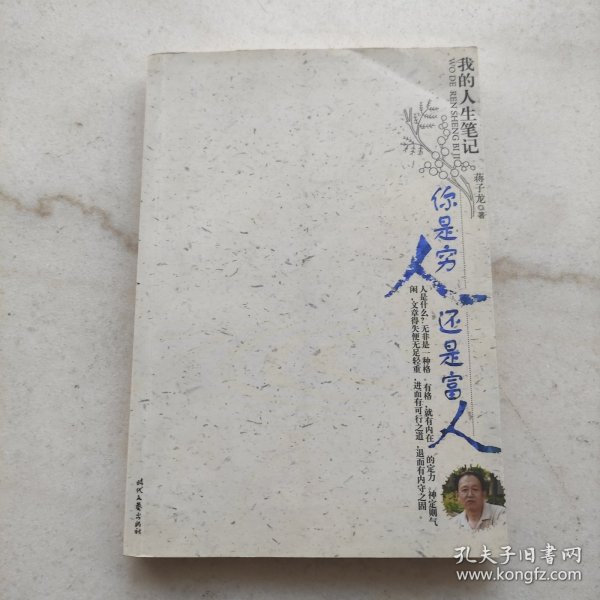 我的人生笔记
WO DE REN SHENG BI JI
蒋子龙◎著
你是穷人
还是富人
人是什么?无非是一种格。有格,就有内在的定力,神定则气
闲,文章得失便无足轻重,进而有可行之道,退而有内守之固。
时代文艺出版社
孔夫子旧书网
www.kongfz.com